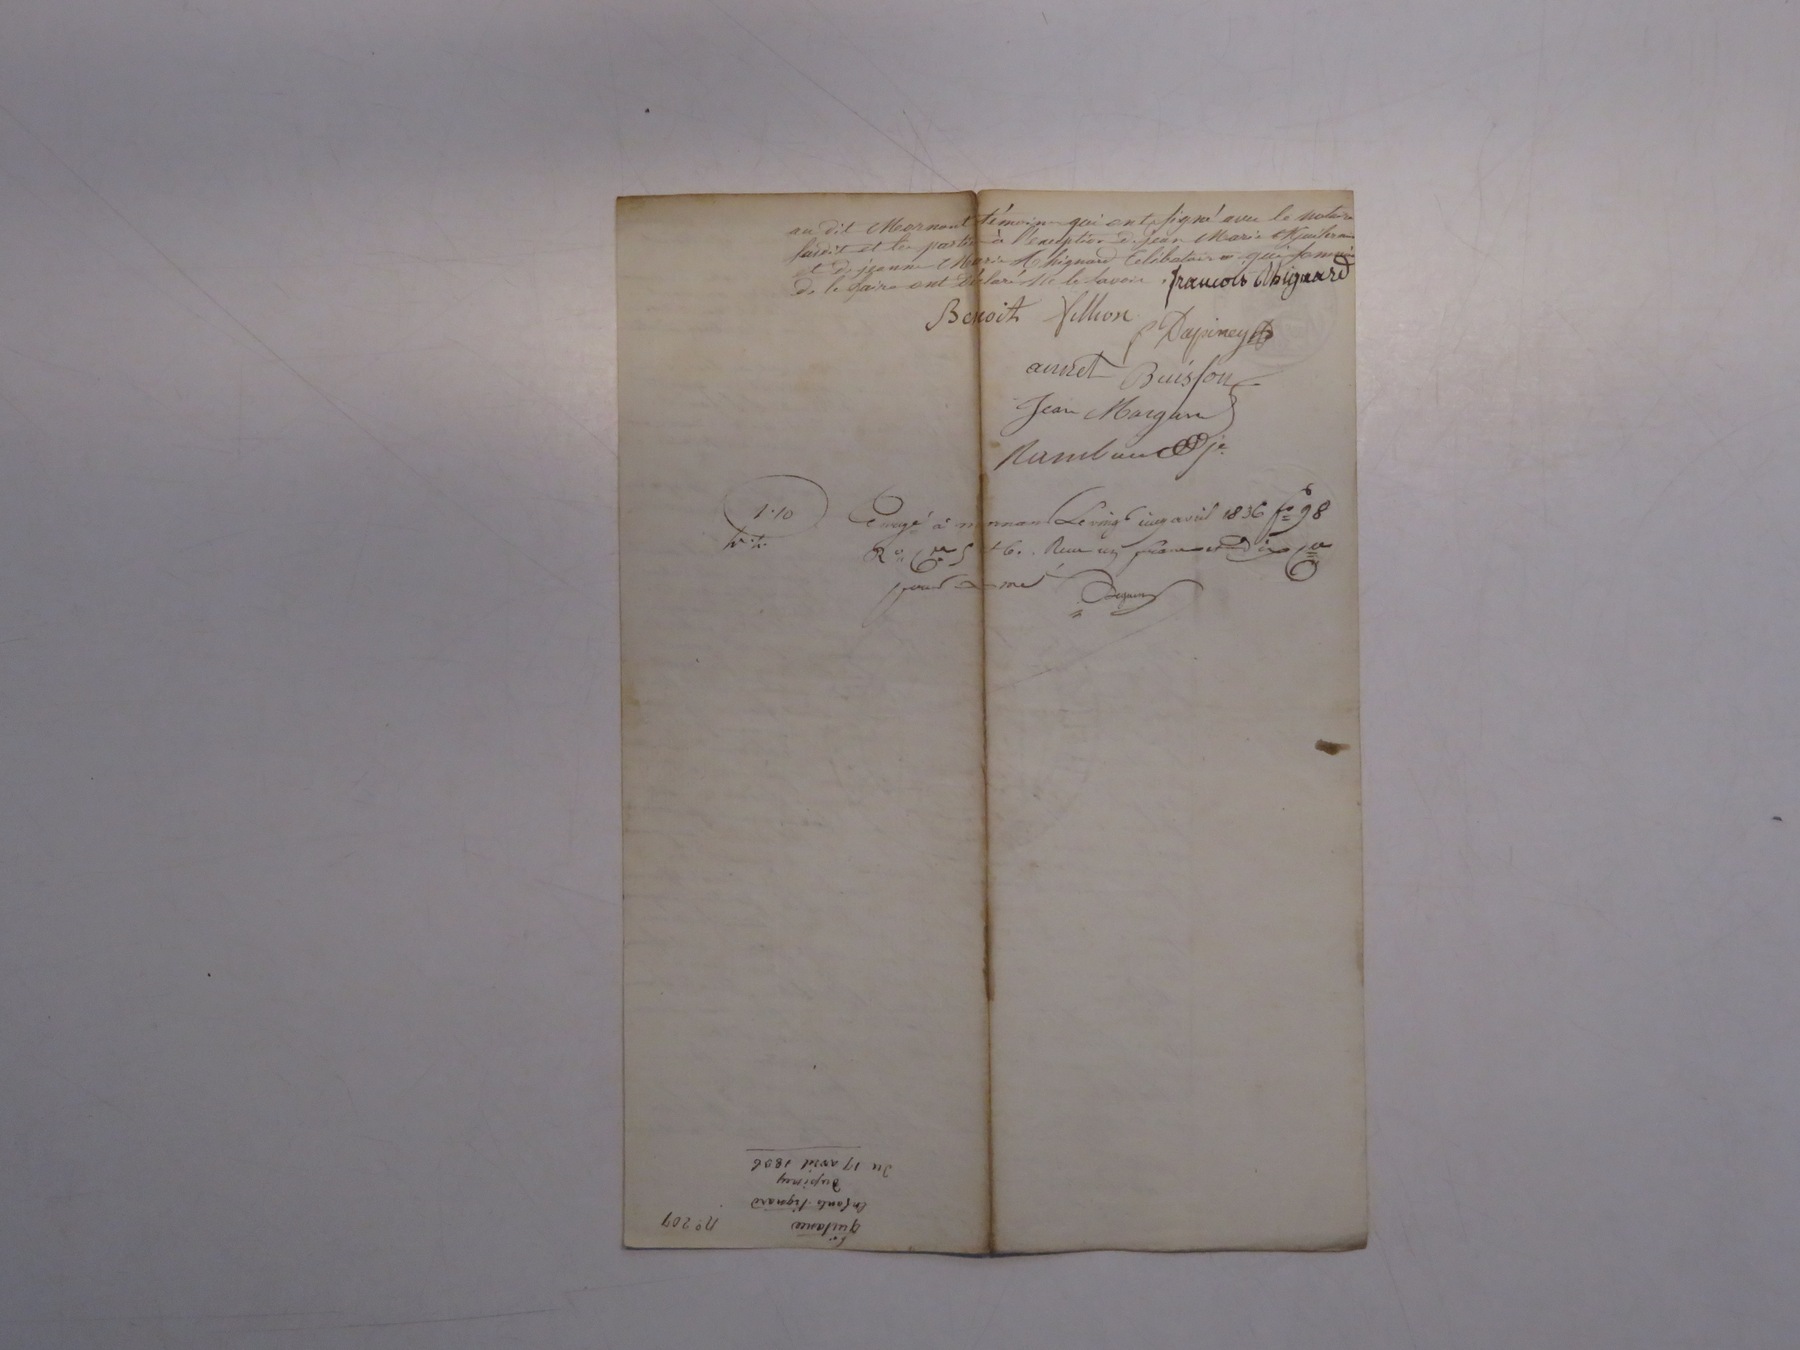 au dit Mornant témoins qui ont signé avec le notaire
susdit et les parties à l'exception de jean Marie
et de jeanne Marie Thignard Célibataire qui
de le faire ont déclaré ne le savoir. francois thignard
Benoit Villion
Dupiney
Buisson
Jean Margan
Rambaud je
1.10
Enregé à mornant le vingt cinq avril 1836 fo 98
Ro Ces 5 et 6. Reçu un franc et dix ces
pour
Quitance
enfants Pignard
Dupiney
Du 17 avril 1836
no 207